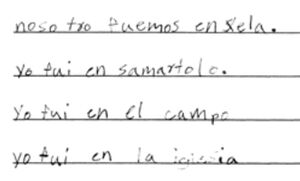 noso tro fuemos en xela.
yo fui en samartolo.
Yo fui en el campo
yo fui en la iglesia